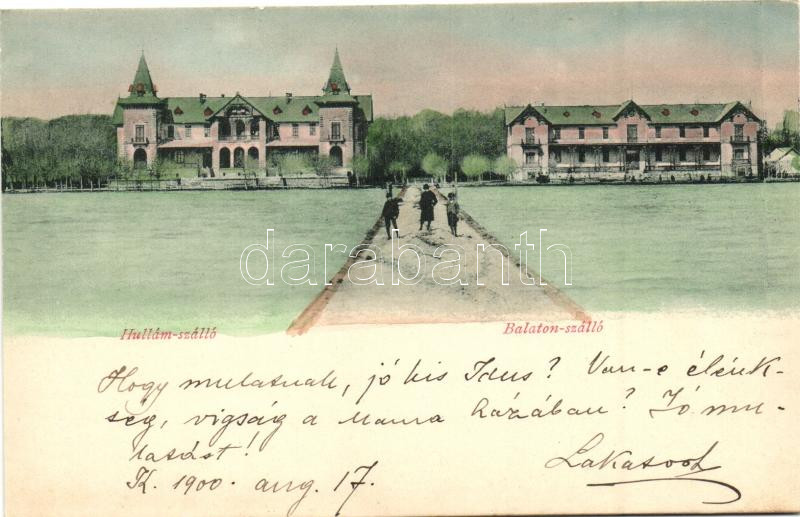 darabanth
Hullám-szálló
Balaton-szálló
Hogy mulatnak, jó kis Idus? Van-e élénk-
ség, vigság a Mama házában? Jó mu-
latást!
K. 1900. aug. 17.